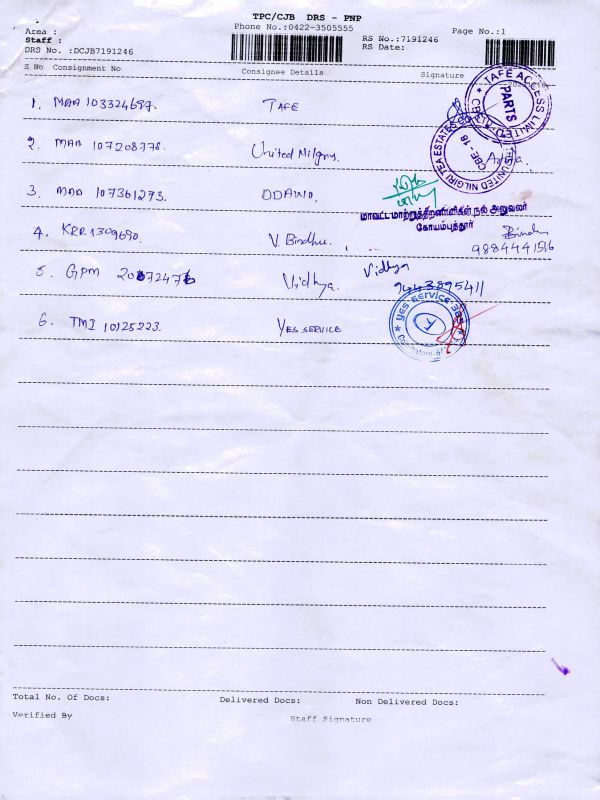 TPC/CJB DRS - PNP
Phone No.:0422-3505555
Area :
Staff :
DRS No. :DCJB7191246
RS No.:7191246
RS Date:
Page No.:1
S No Consignment No Consignee Details Signature
1. MAA 103324697. TAFE
TAFE ACCESS LIMITED
PARTS
2. MAA 107208778. United Nilgiry.
UNITED NILGIRI TEA ESTATES
CBE-18
3. MAA 107361273. DDAWO.
மாவட்ட மாற்றுத்திறனாளிகள் நல அலுவலர்
கோயம்புத்தூர்
4. KRR1309690. V. Bindhu. Bindhu
9884441516
5. GPM 20672476 Vidhya. Vidhya
9443895411
6. TMI 10125223. YES SERVICE
Yes Service
Total No. Of Docs: Delivered Docs: Non Delivered Docs:
Verified By Staff Signature